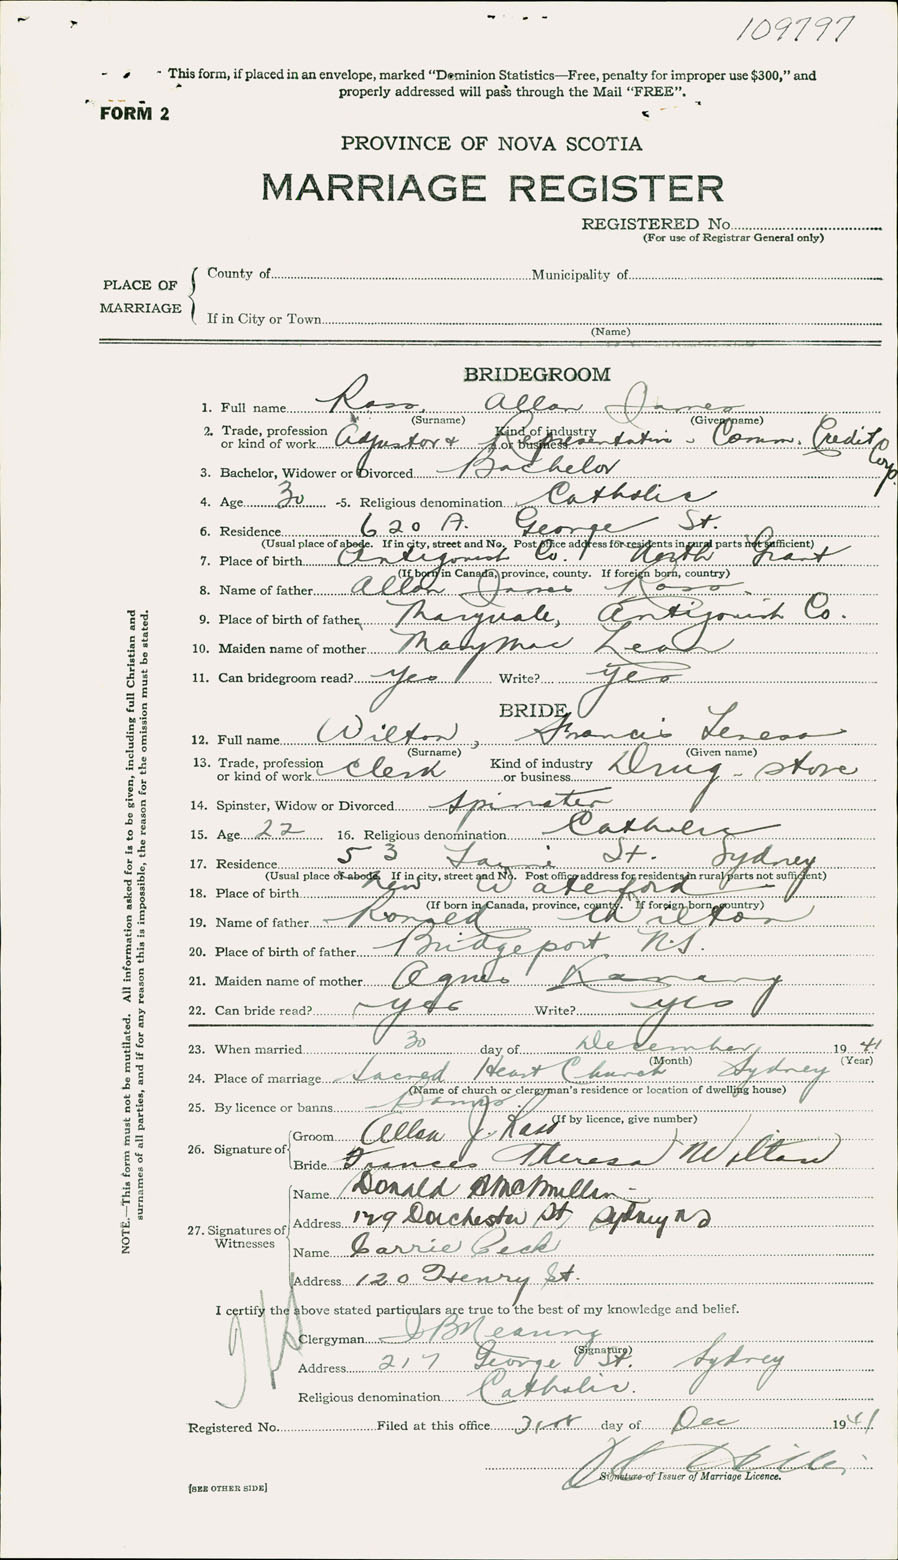 109797
This form, if placed in an envelope, marked “Dominion Statistics—Free, penalty for improper use $300,” and
properly addressed will pass through the Mail “FREE”.
FORM 2
PROVINCE OF NOVA SCOTIA
MARRIAGE REGISTER
REGISTERED No.
(For use of Registrar General only)
PLACE OF MARRIAGE
County of Municipality of
If in City or Town
(Name)
BRIDEGROOM
1. Full name Ross, Allan James
(Surname) (Given name)
2. Trade, profession or kind of work Adjustor & Kind of industry or business Representative - Comm. Credit Corp.
3. Bachelor, Widower or Divorced Bachelor
4. Age 30 -5. Religious denomination Catholic
6. Residence 620 A. George St.
(Usual place of abode. If in city, street and No. Post office address for residents in rural parts not sufficient)
7. Place of birth Antigonish Co. North Grant
(If born in Canada, province, county. If foreign born, country)
8. Name of father Allan James Ross
9. Place of birth of father Maryvale, Antigonish Co.
10. Maiden name of mother Mary Mac Lean
11. Can bridegroom read? yes Write? yes
BRIDE
12. Full name Wilton, Francis Teresa
(Surname) (Given name)
13. Trade, profession or kind of work Clerk Kind of industry or business Drug-store
14. Spinster, Widow or Divorced Spinster
15. Age 22 16. Religious denomination Catholic
17. Residence 53 St. Sydney
(Usual place of abode. If in city, street and No. Post office address for residents in rural parts not sufficient)
18. Place of birth New Waterford
(If born in Canada, province, county. If foreign born, country)
19. Name of father Ronald Wilton
20. Place of birth of father Bridgeport N.S.
21. Maiden name of mother Agnes
22. Can bride read? yes Write? yes
23. When married 30 day of December 1941
(Month) (Year)
24. Place of marriage Sacred Heart Church Sydney
(Name of church or clergyman's residence or location of dwelling house)
25. By licence or banns Banns
(If by licence, give number)
26. Signature of
Groom Allan J. Ross
Bride Frances Theresa Wilton
27. Signatures of Witnesses
Name Donald McMullin
Address 179 Dorchester St Sydney NS
Name Carrie Peck
Address 120 Henry St.
I certify the above stated particulars are true to the best of my knowledge and belief.
Clergyman
(Signature)
Address 217 George St. Sydney
Religious denomination Catholic.
Registered No. Filed at this office 31st day of Dec 1941
Signature of Issuer of Marriage Licence.
[SEE OTHER SIDE]
NOTE.—This form must not be mutilated. All information asked for is to be given, including full Christian and
surnames of all parties, and if for any reason this is impossible, the reason for the omission must be stated.